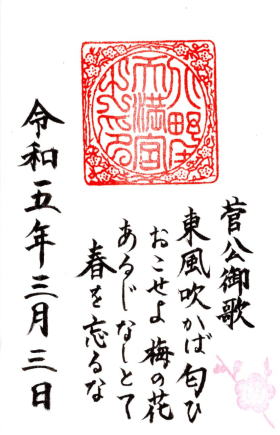 天満宮
菅公御歌
東風吹かば匂ひ
おこせよ梅の花
あるじなしとて
春を忘るな
令和五年三月三日